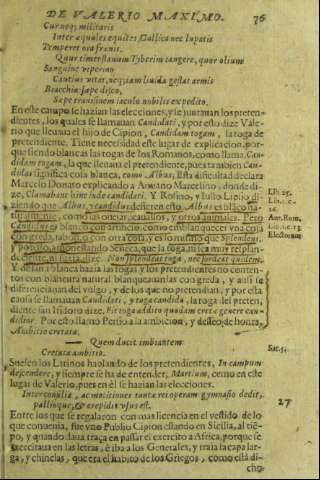 DE VALERIO MAXIMO. 76
Cur neq; militaris
Inter æquales equitet, Gallica nec lupatis
Temperet ora frænis,
Quur timet flavum Tyberim tangere, quor olium
Sanguine viperino
Cautius vitat, neq; iam liuida gestat armis
Brachia sæpe disco,
Sæpe trans finem iaculo nobilis expedito,
En este campo se hazian las elecciones, y se juntauan los preten-
dientes, los quales se llamauan Candidati, y por esto dize Vale-
rio que lleuaua el hijo de Cipion, Candidam togam, la toga de
pretendiente. Tiene necessidad este lugar de explicacion, por-
que siendo blancas las togas de los Romanos, como llama, Can-
didam togam, la que lleuaua el pretendiente, pues tambien Can-
didas significa cola blanca, como Albas, Esta dificultad declara
Marcelo Donato explicando a Amiano Marcelino, donde di-
ze, Clamabant hinc inde candidati. Y Rosino, y Iusto Lipsio di-
ziendo que Albus, y candidus difieren esto. Albus es blãco na-
turalmẽte, como las ouejas, cauallos, y otros animales. Pero
Candidus es blanco con artificio, como emblanquecer vna cosa
con greda, jabon, o con otra cosa, y es lo mismo que Splendens,
y por esto amonestando Seneca, que la toga, ni sea muy resplan-
deciente, ni suzia, dize. Non splendeat toga, nec sordeat quidem.
Y de lana blanca hazia las togas, y los pretendientes no conten-
tos con blancura natural blanqueauanlas con greda, y ausi se
diferenciauan del vulgo, y de los que no pretendian, y por esta
causa se llamauan Candidati, y toga candida, la toga del preten-
diente san Isidoro dize, Fit toga addito quodam cretæ genere can-
didior. Por esto llamo Persio a la ambicion, y desseo, de honra,
Ambitio cretata.
Quem ducit imbiantem
Cretata ambitio.
Suelen los Latinos hablando de los pretendientes, In campum
descendere, y siempre se ha de entender, Martium, como en este
lugar de Valerio, pues en el se hazian las elecciones.
pallioque, & crepidis vsus est.
Entre los que se regalaron con mas licencia en el vestido de lo
que conuenia, fue vno Publio Cipion estando en Sicilia, al tiẽ-
po, y quando daua traça en passar el exercito a Africa, porque se
exercitaua en las letras, e iba a los Generales, y traia la capa lar-
ga, y chinelas, que era el habito de los Griegos, como està di-
cho
Ant. Rom.
Electorum
Sat. 5.
27